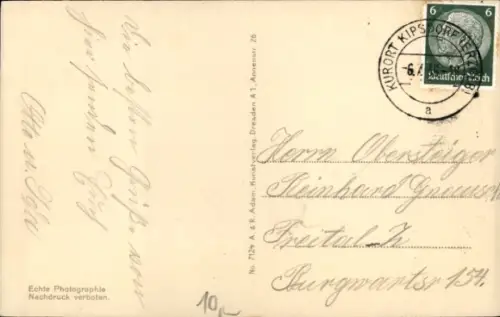 Die besten Grüße von
hier senden Euch
Otto u.
Echte Photographie
Nachdruck verboten.
Nr. 7124 A. & R. Adam, Kunstverlag, Dresden A 1, Annenstr. 26
6 6
Deutsches Reich
KURORT KIPSDORF (ERZGEB)
a
Herrn Obersteiger
Reinhard
Freital-Z
Burgwartstr 154.
10,-